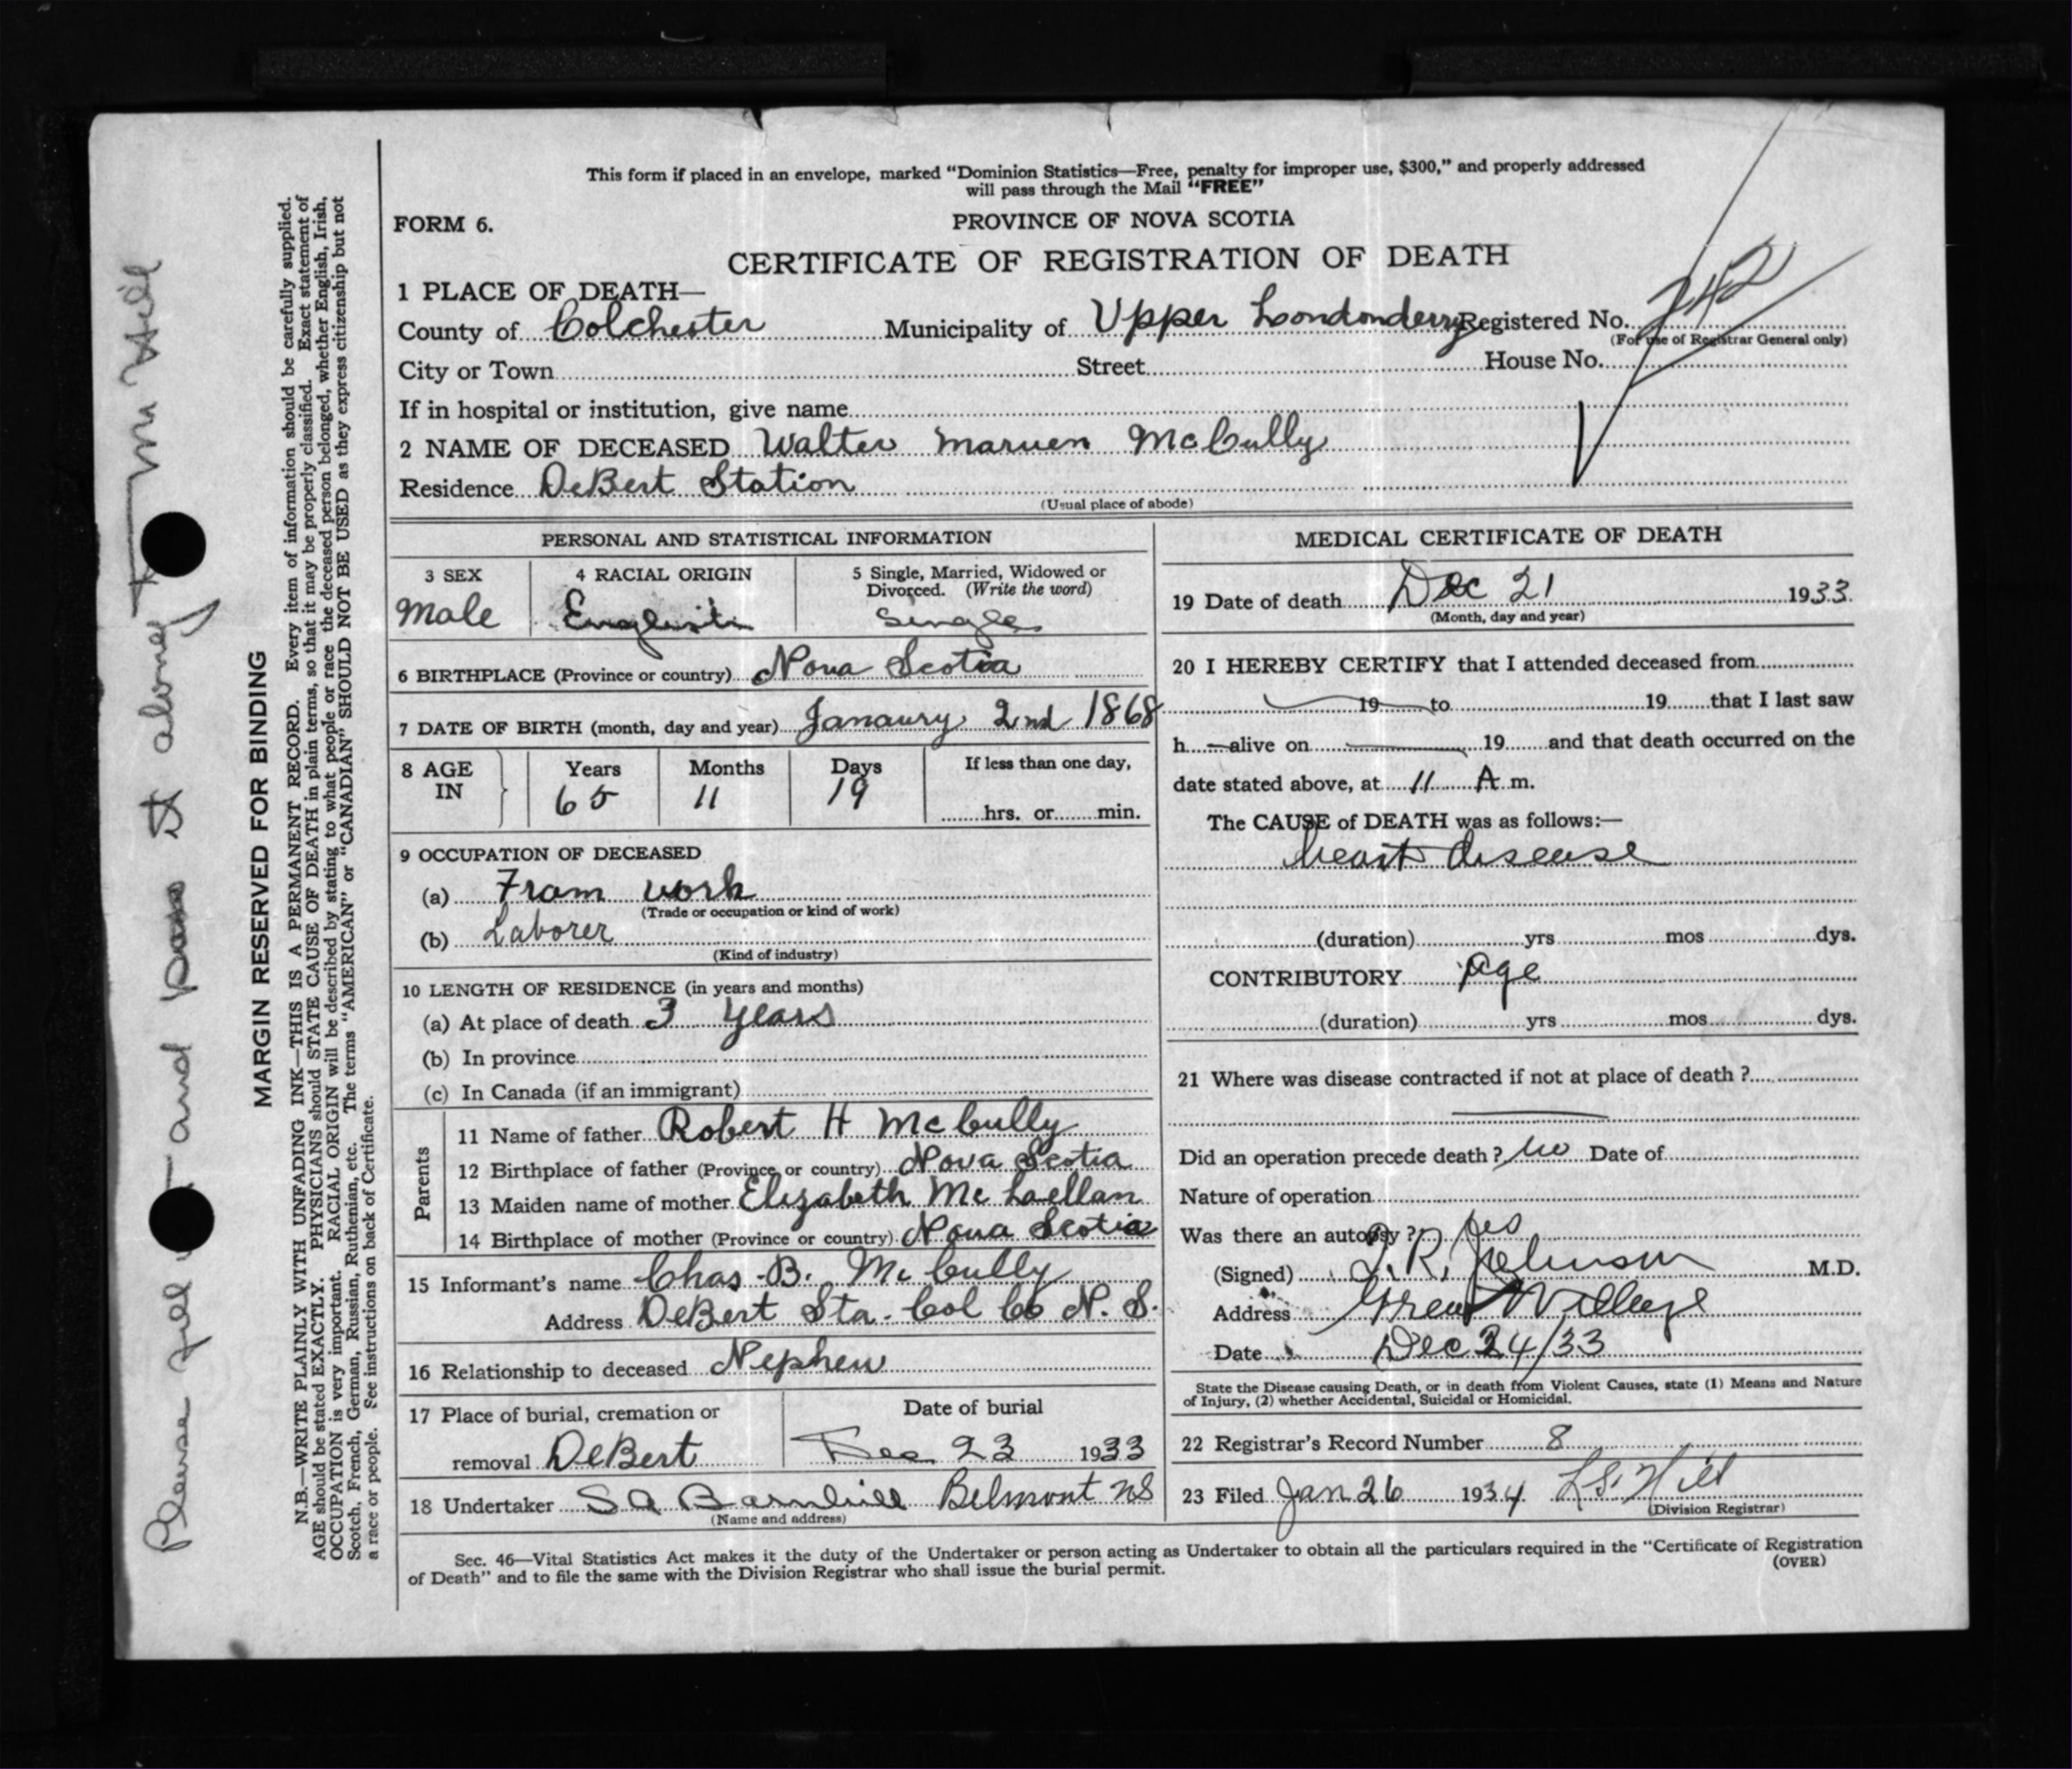 This form if placed in an envelope, marked “Dominion Statistics—Free, penalty for improper use, $300,” and properly addressed
will pass through the Mail “FREE”
FORM 6.
PROVINCE OF NOVA SCOTIA
CERTIFICATE OF REGISTRATION OF DEATH
1 PLACE OF DEATH—
County of Colchester Municipality of Upper Londonderry Registered No. 242
(For use of Registrar General only)
City or Town Street House No.
If in hospital or institution, give name
2 NAME OF DECEASED Walter Marven McCully
Residence DeBert Station
(Usual place of abode)
PERSONAL AND STATISTICAL INFORMATION
3 SEX
Male
4 RACIAL ORIGIN
English
5 Single, Married, Widowed or
Divorced. (Write the word)
Single
6 BIRTHPLACE (Province or country) Nova Scotia
7 DATE OF BIRTH (month, day and year) Janaury 2nd 1868
8 AGE IN
Years Months Days If less than one day,
65 11 19
hrs. or min.
9 OCCUPATION OF DECEASED
(a) Fram work
(Trade or occupation or kind of work)
(b) Laborer
(Kind of industry)
10 LENGTH OF RESIDENCE (in years and months)
(a) At place of death 3 years
(b) In province
(c) In Canada (if an immigrant)
Parents
11 Name of father Robert H McCully
12 Birthplace of father (Province or country) Nova Scotia
13 Maiden name of mother Elizabeth Mc Laellan
14 Birthplace of mother (Province or country) Nova Scotia
15 Informant's name Chas. B. McCully
Address DeBert Sta. Col Co N. S.
16 Relationship to deceased Nephew
17 Place of burial, cremation or
removal DeBert
Date of burial
Dec 23 1933
18 Undertaker S A Barnhill Belmont NS
(Name and address)
MEDICAL CERTIFICATE OF DEATH
19 Date of death Dec 21 1933
(Month, day and year)
20 I HEREBY CERTIFY that I attended deceased from
19 to 19 that I last saw
h alive on 19 and that death occurred on the
date stated above, at 11 A m.
The CAUSE of DEATH was as follows:—
heart disease
(duration) yrs mos dys.
CONTRIBUTORY age
(duration) yrs mos dys.
21 Where was disease contracted if not at place of death ?
Did an operation precede death ? no Date of
Nature of operation
Was there an autopsy ? Yes
(Signed) T. R. Johnson M.D.
Address Great Village
Date Dec 24/33
State the Disease causing Death, or in death from Violent Causes, state (1) Means and Nature
of Injury, (2) whether Accidental, Suicidal or Homicidal.
22 Registrar's Record Number 8
23 Filed Jan 26 1934 L S. Hill
(Division Registrar)
Sec. 46—Vital Statistics Act makes it the duty of the Undertaker or person acting as Undertaker to obtain all the particulars required in the “Certificate of Registration
of Death” and to file the same with the Division Registrar who shall issue the burial permit.
(OVER)
MARGIN RESERVED FOR BINDING
N.B.—WRITE PLAINLY WITH UNFADING INK—THIS IS A PERMANENT RECORD. Every item of information should be carefully supplied.
AGE should be stated EXACTLY. PHYSICIANS should STATE CAUSE OF DEATH in plain terms, so that it may be properly classified. Exact statement of
OCCUPATION is very important. RACIAL ORIGIN will be described by stating to what people or race the deceased person belonged, whether English, Irish,
Scotch, French, German, Russian, Ruthenian, etc. The terms “AMERICAN” or “CANADIAN” SHOULD NOT BE USED as they express citizenship but not
a race or people. See instructions on back of Certificate.
Please fill and pass it along Mr Hill